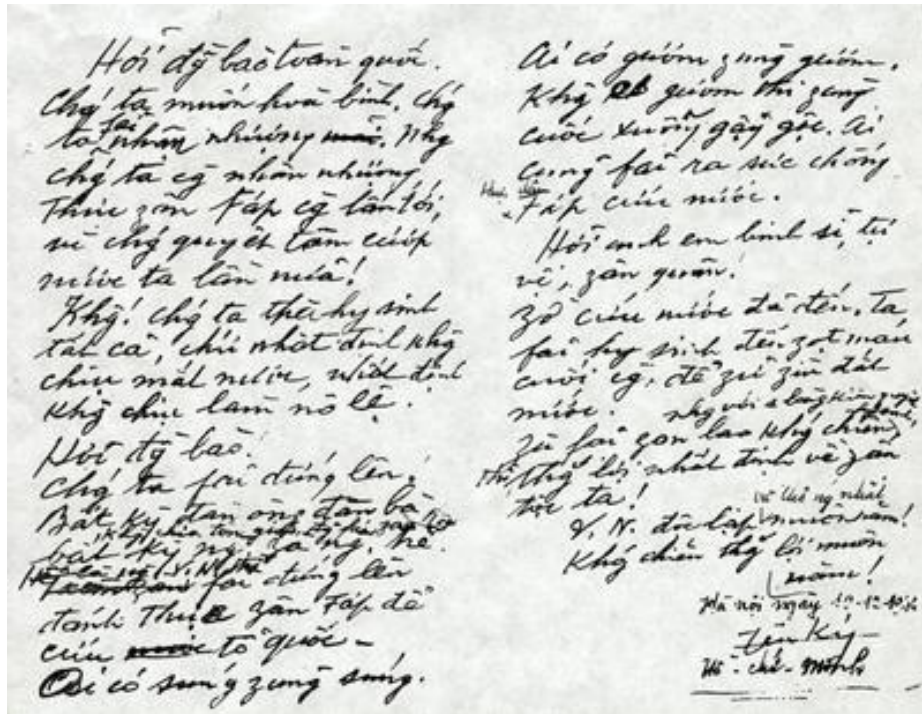 Hỡi đg̀ bào toàn quốc.
Chǵ ta muốn hoà bình, chǵ
ta fải nhân nhượng. Nhg
chǵ ta cg̀ nhân nhượng,
thực zân Fáp cg̀ lấn tới,
vì chǵ quyết tâm cướp
nước ta lần nữa!
Khg! chǵ ta thà hy sinh
tất cả, chứ nhất định khg
chịu mất nước, nhất định
khg chịu làm nô lệ.
Hỡi đg̀ bào!
Chǵ ta fải đứng lên!
Bất kỳ đàn ông, đàn bà
bất kỳ ng̀ zà ng̀ trẻ.
Hễ là ng̀ V.N. thì fải đứng lên
đánh thực zân Fáp để
cứu tổ quốc -
Ai có súng zùng súng.
Ai có gươm zùng gươm.
Khg có gươm thì zùng
cuốc xuổng gậy gộc. Ai
cũng fải ra sức chống
Fáp cứu nước.
Hỡi anh em binh sĩ, tự
vệ, zân quân!
Zờ cứu nước đã đến. Ta
fải hy sinh đến zọt máu
cuối cg̀, để zữ zìn đất
nước.
Zù fải zan lao khǵ chiến,
nhg với 1 lòng kiên quyết
thǵ lợi nhất định về zân
tộc ta!
V.N. độc lập và thống nhất muôn năm!
Khǵ chiến thǵ lợi muôn
năm!
Hà nội ngày
Hồ-chí-Minh